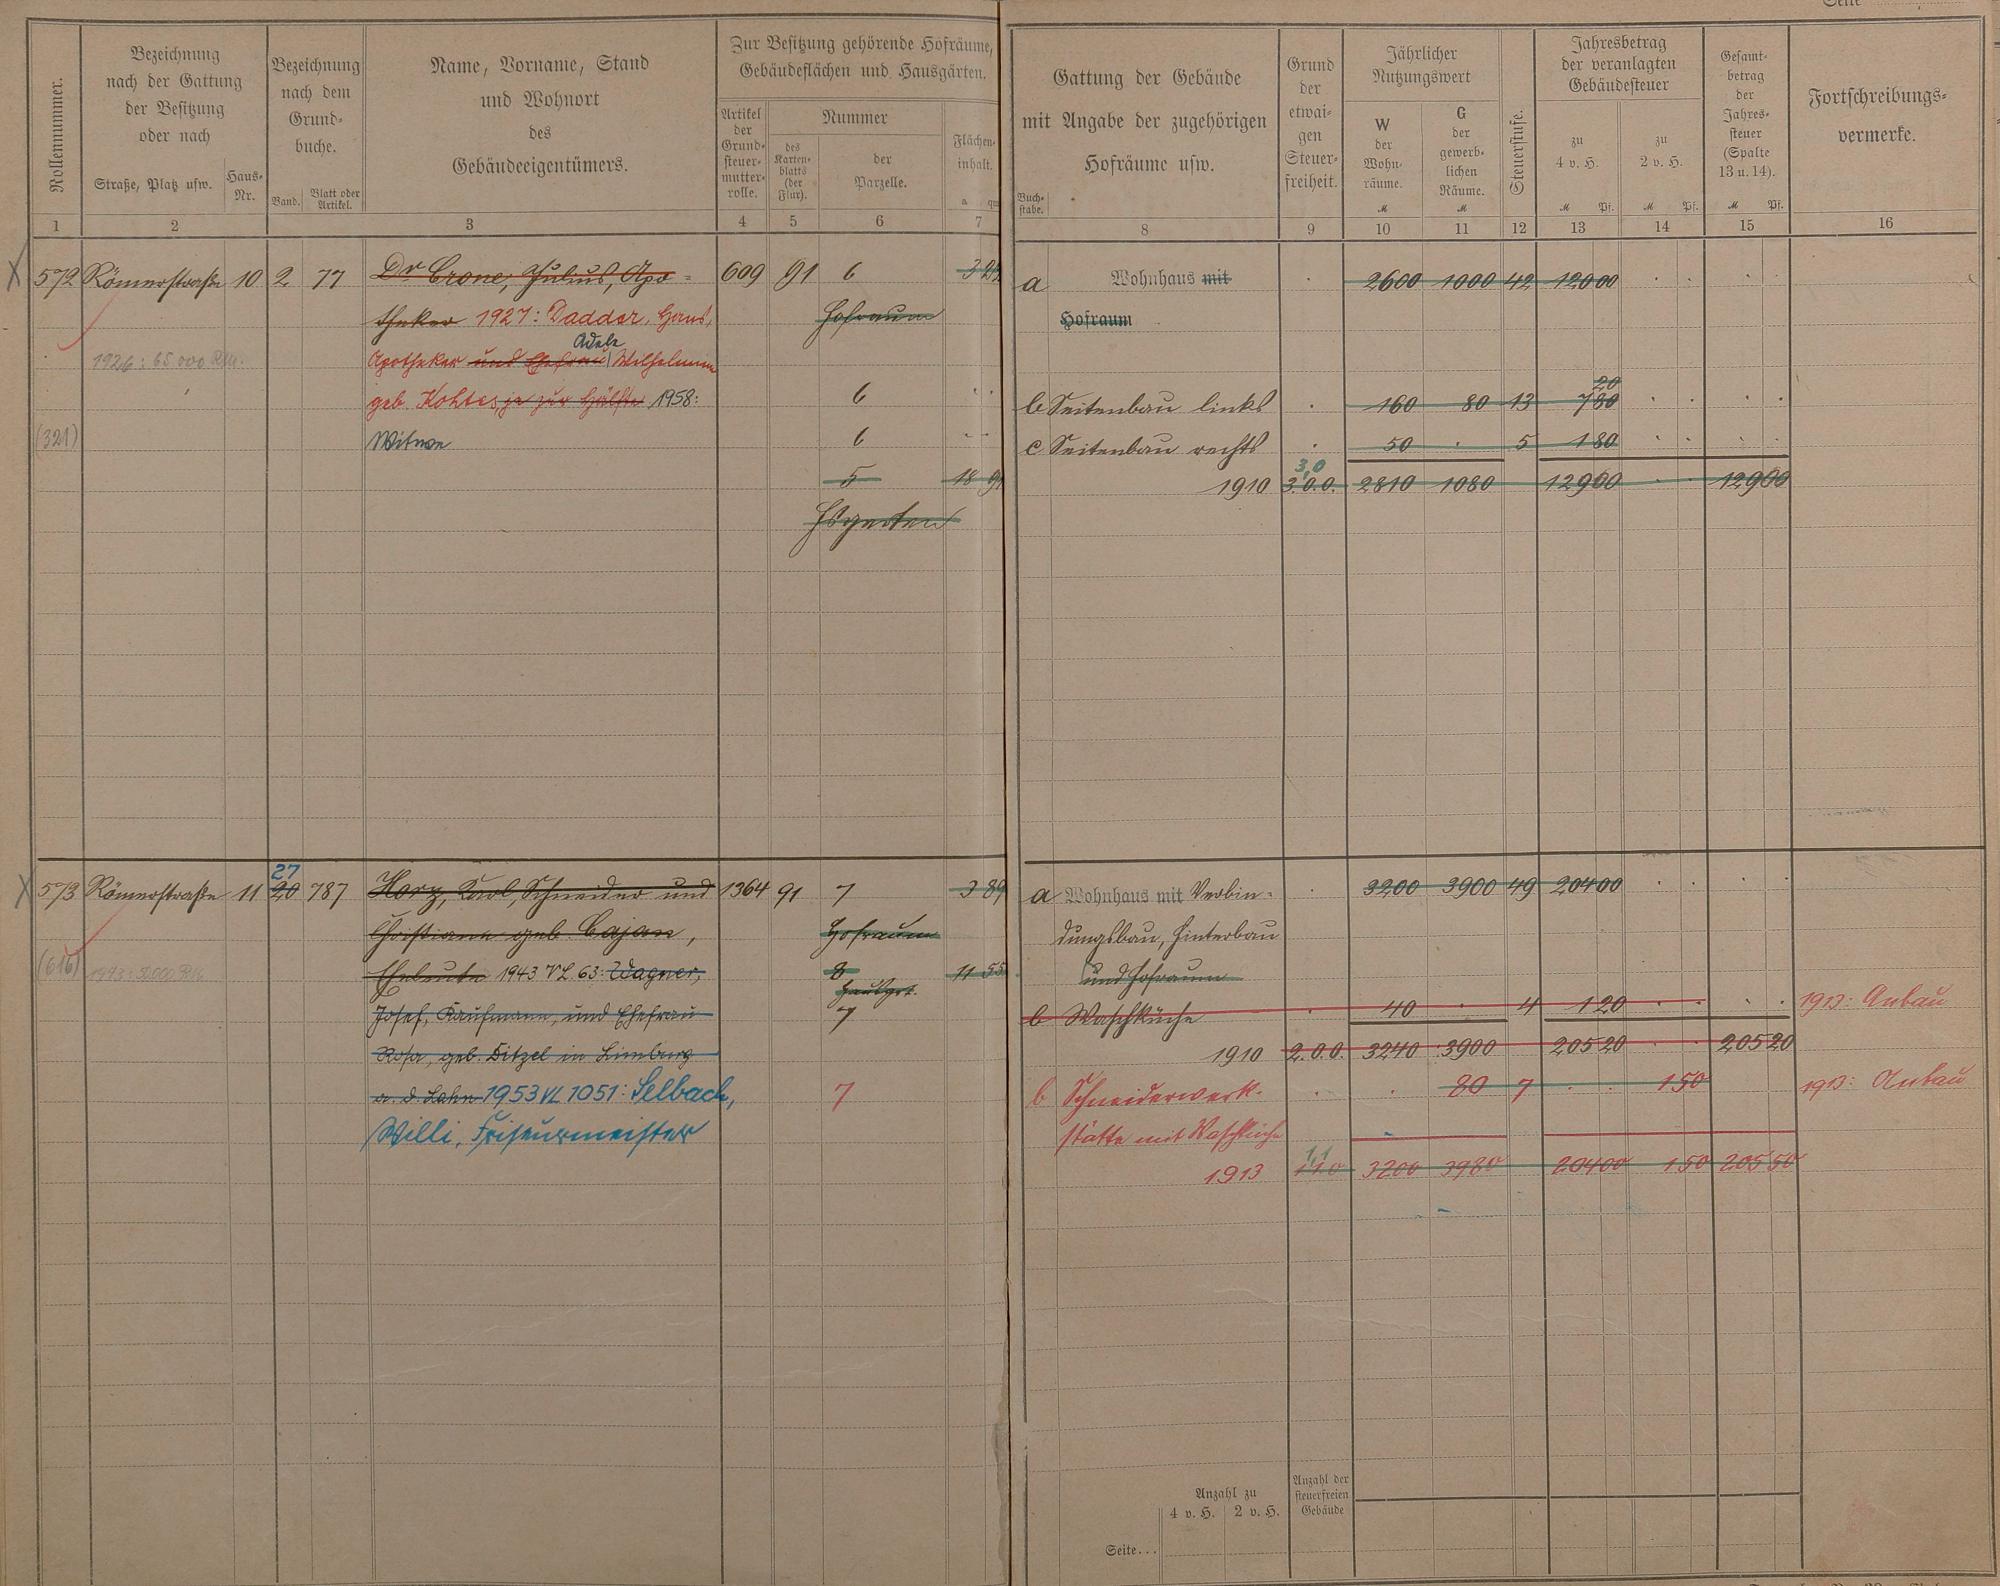 Seite
Rollennummer.
Bezeichnung
nach der Gattung
der Besitzung
oder nach
Straße, Platz usw.
Haus-
Nr.
Bezeichnung
nach dem
Grund-
buche.
Band.
Blatt oder
Artikel.
Name, Vorname, Stand
und Wohnort
des
Gebäudeeigentümers.
Zur Besitzung gehörende Hofräume,
Gebäudeflächen und Hausgärten.
Artikel
der
Grund-
steuer-
mutter-
rolle.
Nummer
des
Karten-
blatts
(der
Flur).
der
Parzelle.
Flächen-
inhalt.
a qm
Gattung der Gebäude
mit Angabe der zugehörigen
Hofräume usw.
Buch-
stabe.
Grund
der
etwai-
gen
Steuer-
freiheit.
Jährlicher
Nutzungswert
W
der
Wohn-
räume.
M
G
der
gewerb-
lichen
Räume.
M
Steuerstufe.
Jahresbetrag
der veranlagten
Gebäudesteuer
zu
4 v. H.
M Pf.
zu
2 v. H.
M Pf.
Gesamt-
betrag
der
Jahres-
steuer
(Spalte
13 u. 14).
M Pf.
Fortschreibungs-
vermerke.
1 2 3 4 5 6 7 8 9 10 11 12 13 14 15 16
572 Römerstraße 10 2 77 Dr Crone, Julius, Apo= 609 91 6 3 a Wohnhaus mit 2600 1000 42 120 00
theker 1927: Dadder, Hans, Hofraum Hofraum
Adele
1926: 65 000 RM. Apotheker und Ehefrau Wilhelmine
geb. Kohtes, je zur Hälfte 1958: 6 b Seitenbau links 160 80 13 7 80
20
(321) Witwe 6 c Seitenbau rechts 50 5 1 80
5 18 91 1910 3.0.0. 2810 1080 129 60 129 00
3,0
Hsgarten
27
573 Römerstraße 11 20 787 Horz, Karl, Schneider und 1364 91 7 3 89 a Wohnhaus mit Verbin- 3200 3900 49 204 00
Christiane geb. Cajan, Hofraum dungsbau, Hinterbau
(616) Eheleute 1943 VL. 63: Wagner, 8 11 55 und Hofraum
Hausgrt.
Josef, Kaufmann, und Ehefrau 7 b Waschküche 40 4 1 20 1913: Anbau
Rosa, geb. Ditzel in Limburg 1910 2.0.0. 3240 3900 205 20 205 20
a. d. Lahn 1953 VL 1051: Selbach, 7 b Schneiderwerk- 80 7 1 50 1913: Anbau
Willi, Friseurmeister stätte mit Waschküche
1913 1 1 0 3200 3980 204 00 1 50 205 50
1,1
Anzahl zu
4 v. H. 2 v. H.
Anzahl der
steuerfreien
Gebäude
Seite...